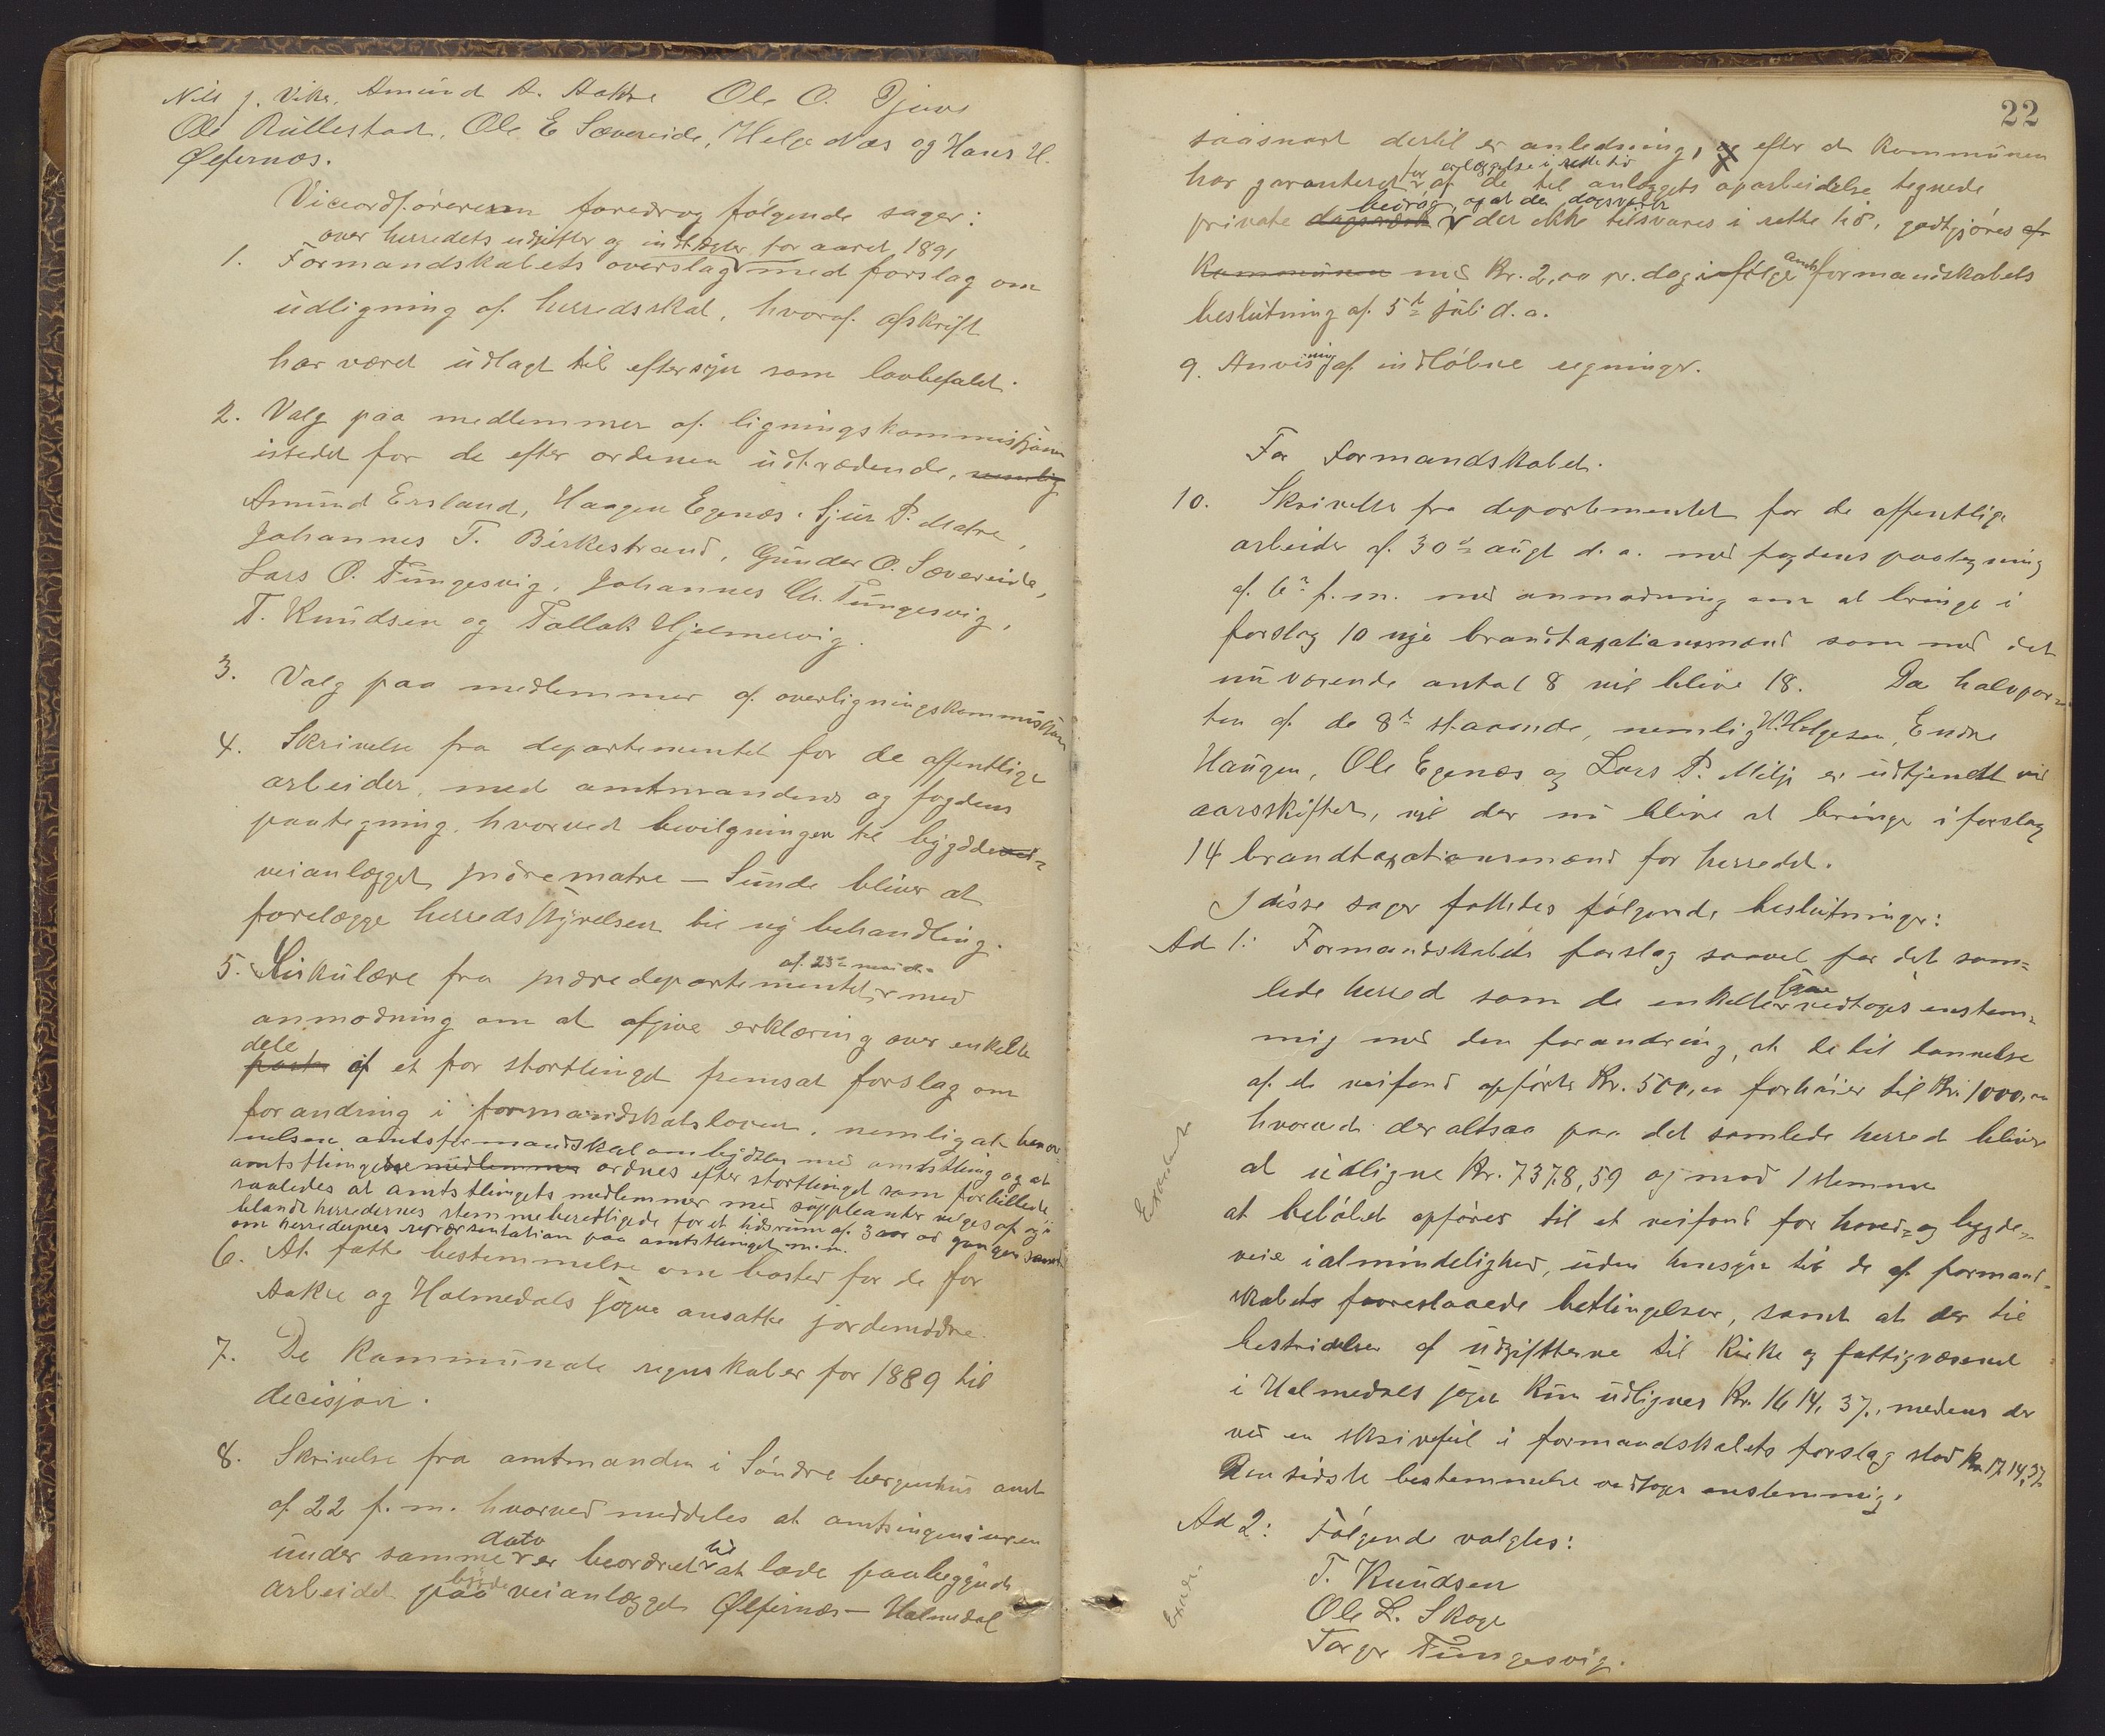 Nils J. Vika, Amund A. Aakre Ole O. Djuve
Ole Rullestad, Ole E Sævereide, Helge Næs og Hans H.
Ølfernæs.
Viceordføreren foredrog følgende sager:
over herredets udgifter og indtægter for aaret 1891
1. Formandskabets overslag med forslag om
udligning af herredsskat, hvoraf afskrift
har været udlagt til eftersyn som lovbefalet.
2. Valg paa medlemmer af ligningskommissjonen
istedet for de efter ordenen udtrædende, nemlig
Amund Ersland, Haagen Egenæs, Sjur P. Matre,
Johannes T. Birkestrand, Gunder O. Sævereide,
Lars O. Tungesvig, Johannes Ch. Tungesvig,
T. Knudsen og Tallak Hjelmervig.
3. Valg paa medlemmer af overligningskommissjonen
4. Skrivelse fra departementet for de offentlige
arbeider, med amtmandens og fogdens
paategning, hvorved bevilgningen til bygde
veianlægget indre matre — Sunde bliver at
forelægge herredsstyrelsen til ny behandling.
af 23de mai d.a.
5. Cirkulære fra indredepartementet med
anmodning om at afgive erklæring over enkelte
dele
af et for storthinget fremsat forslag om
forandring i formandskabsloven, nemlig at benæv-
nelsen amtsformandskab ombyttes med amtsthing og at
amtsthingets medlemmer ordnes efter storthinget som forbillede
saaledes at amtsthingets medlemmer med suppleanter vælges af og
blandt herredernes stemmeberettigede for et tidsrum af 3 aar ad gangen samt
om herredernes repræsentation paa amtsthinget m.m.
6. At fatte bestemmelse om bosted for de for
Aakre og Holmedals sogne ansatte jordemødre.
7. De kommunale regnskaber for 1889 til
decisjon.
8. Skrivelse fra amtmanden i Søndre bergenhus amt
af 22 f.m. hvorved meddeles at amtsingeniøren
dato til
under samme er beordret at lade paabegynde
bygde
arbeidet paa veianlægget Ølfernæs — Holmedal
22
saasnart dertil er anledning, og efter at kommunen
for erlæggelse i rette tid
har garanteret af de til anlæggets oparbeidelse tegnede
bedrag, og at der dagsværk
private dagsværk der ikke tilsvares i rette tid, godtgjøres af
Kommunen med Kr. 2,00 pr. dag ifølge amtsformandskabets
beslutning af 5te juli d.a.
9. Anvisning af indløbne regninger.
For Formandskabet.
10. Skrivelse fra departementet for de offentlige
arbeider af 30te augt d.a. med fogdens paategning
af 6te f.m. med anmodning om at bringe i
forslag 10 nye brandtaxationsmænd som med det
nuværende antal 8 vil blive 18. Da halvpar-
ten af de 8te staaende, nemlig H. Helgesen, Endre
Haugen, Ole Egenæs og Lars P. Milje er udtjendt ved
aarsskiftet, vil der nu blive at bringe i forslag
14 brandtaxationsmænd for herredet.
I disse sager fattedes følgende beslutninger:
Ad 1: Formandskabets forslag saavel for det sam-
sogne
lede herred som de enkelte vedtoges enstem-
mig med den forandring, at de til dannelse
af de veifond opførte Kr. 500,00 forhøies til Kr. 1000,00
hvorved der altsaa paa det samlede herred bliver
at udligne Kr. 7378,59 og mod 1 stemme
at beløbet opføres til et veifond for hoved- og bygde-
veie i almindelighed, uden hensyn til de af formand-
skabets foreslaaede betingelser, samt at der til
bestridelse af udgifterne til kirke og fattigvæsenet
i Holmedals sogn kun udlignes Kr. 1614,37, medens der
ved en skrivfeil i formandskabets forslag stod Kr. 1714,37.
Den sidste bestemmelse vedtoges enstemmig.
Ad 2: Følgende valgtes:
T. Knudsen
Ole L. Skoge
Torger Tungesvig.